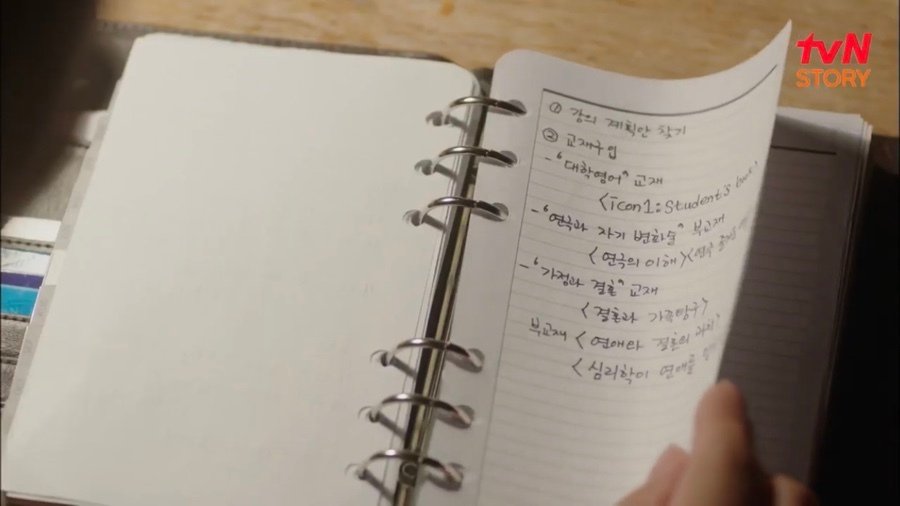 tvN
STORY
① 강의 계획안 찾기
② 교재구입
- "대학영어" 교재
<icon1: Student's book>
- "연극과 자기 변화술" 부교재
<연극의 이해> <연극
- "가정과 결혼" 교재
<결혼과 가족탐구>
부교재 <연애와 결혼의 과학>
<심리학이 연애를